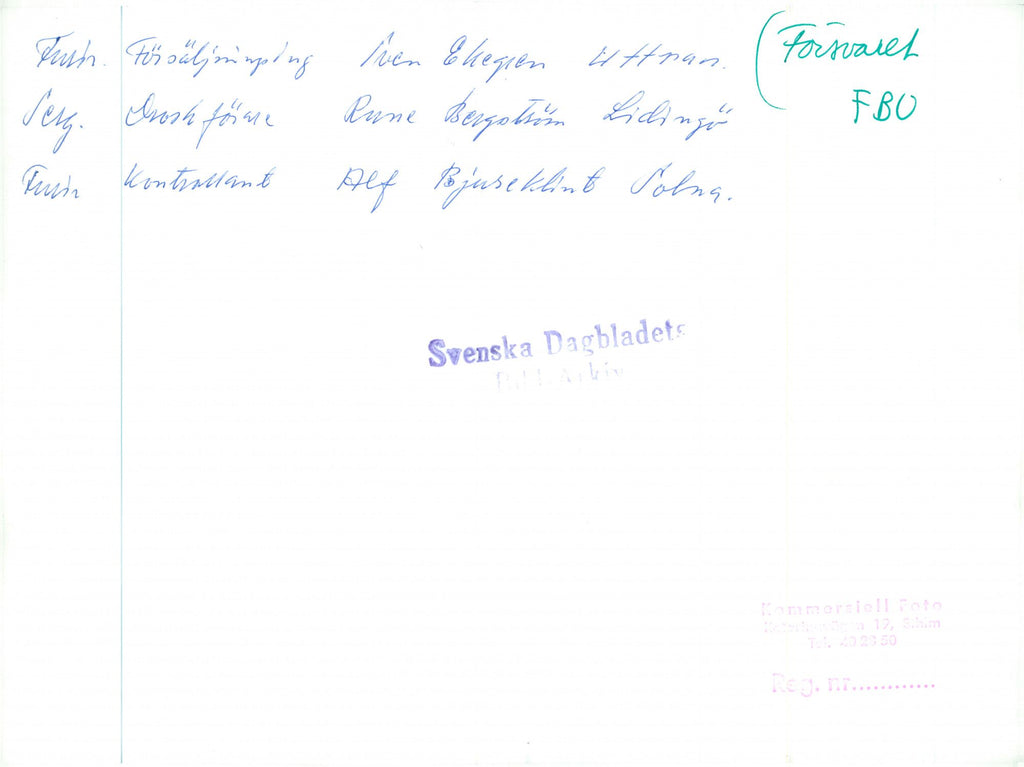 Furir. Försäljningsing Sven Ekegren Uttran.
Serg. Droskförare Rune Bergström Lidingö
Furir Kontrollant Alf Bjuseklint Solna.
Försvaret
FBU
Svenska Dagbladets
Bild-Arkiv
Kommersiell Foto
12, Sthlm
Tel. 40 28 50
Reg. nr............